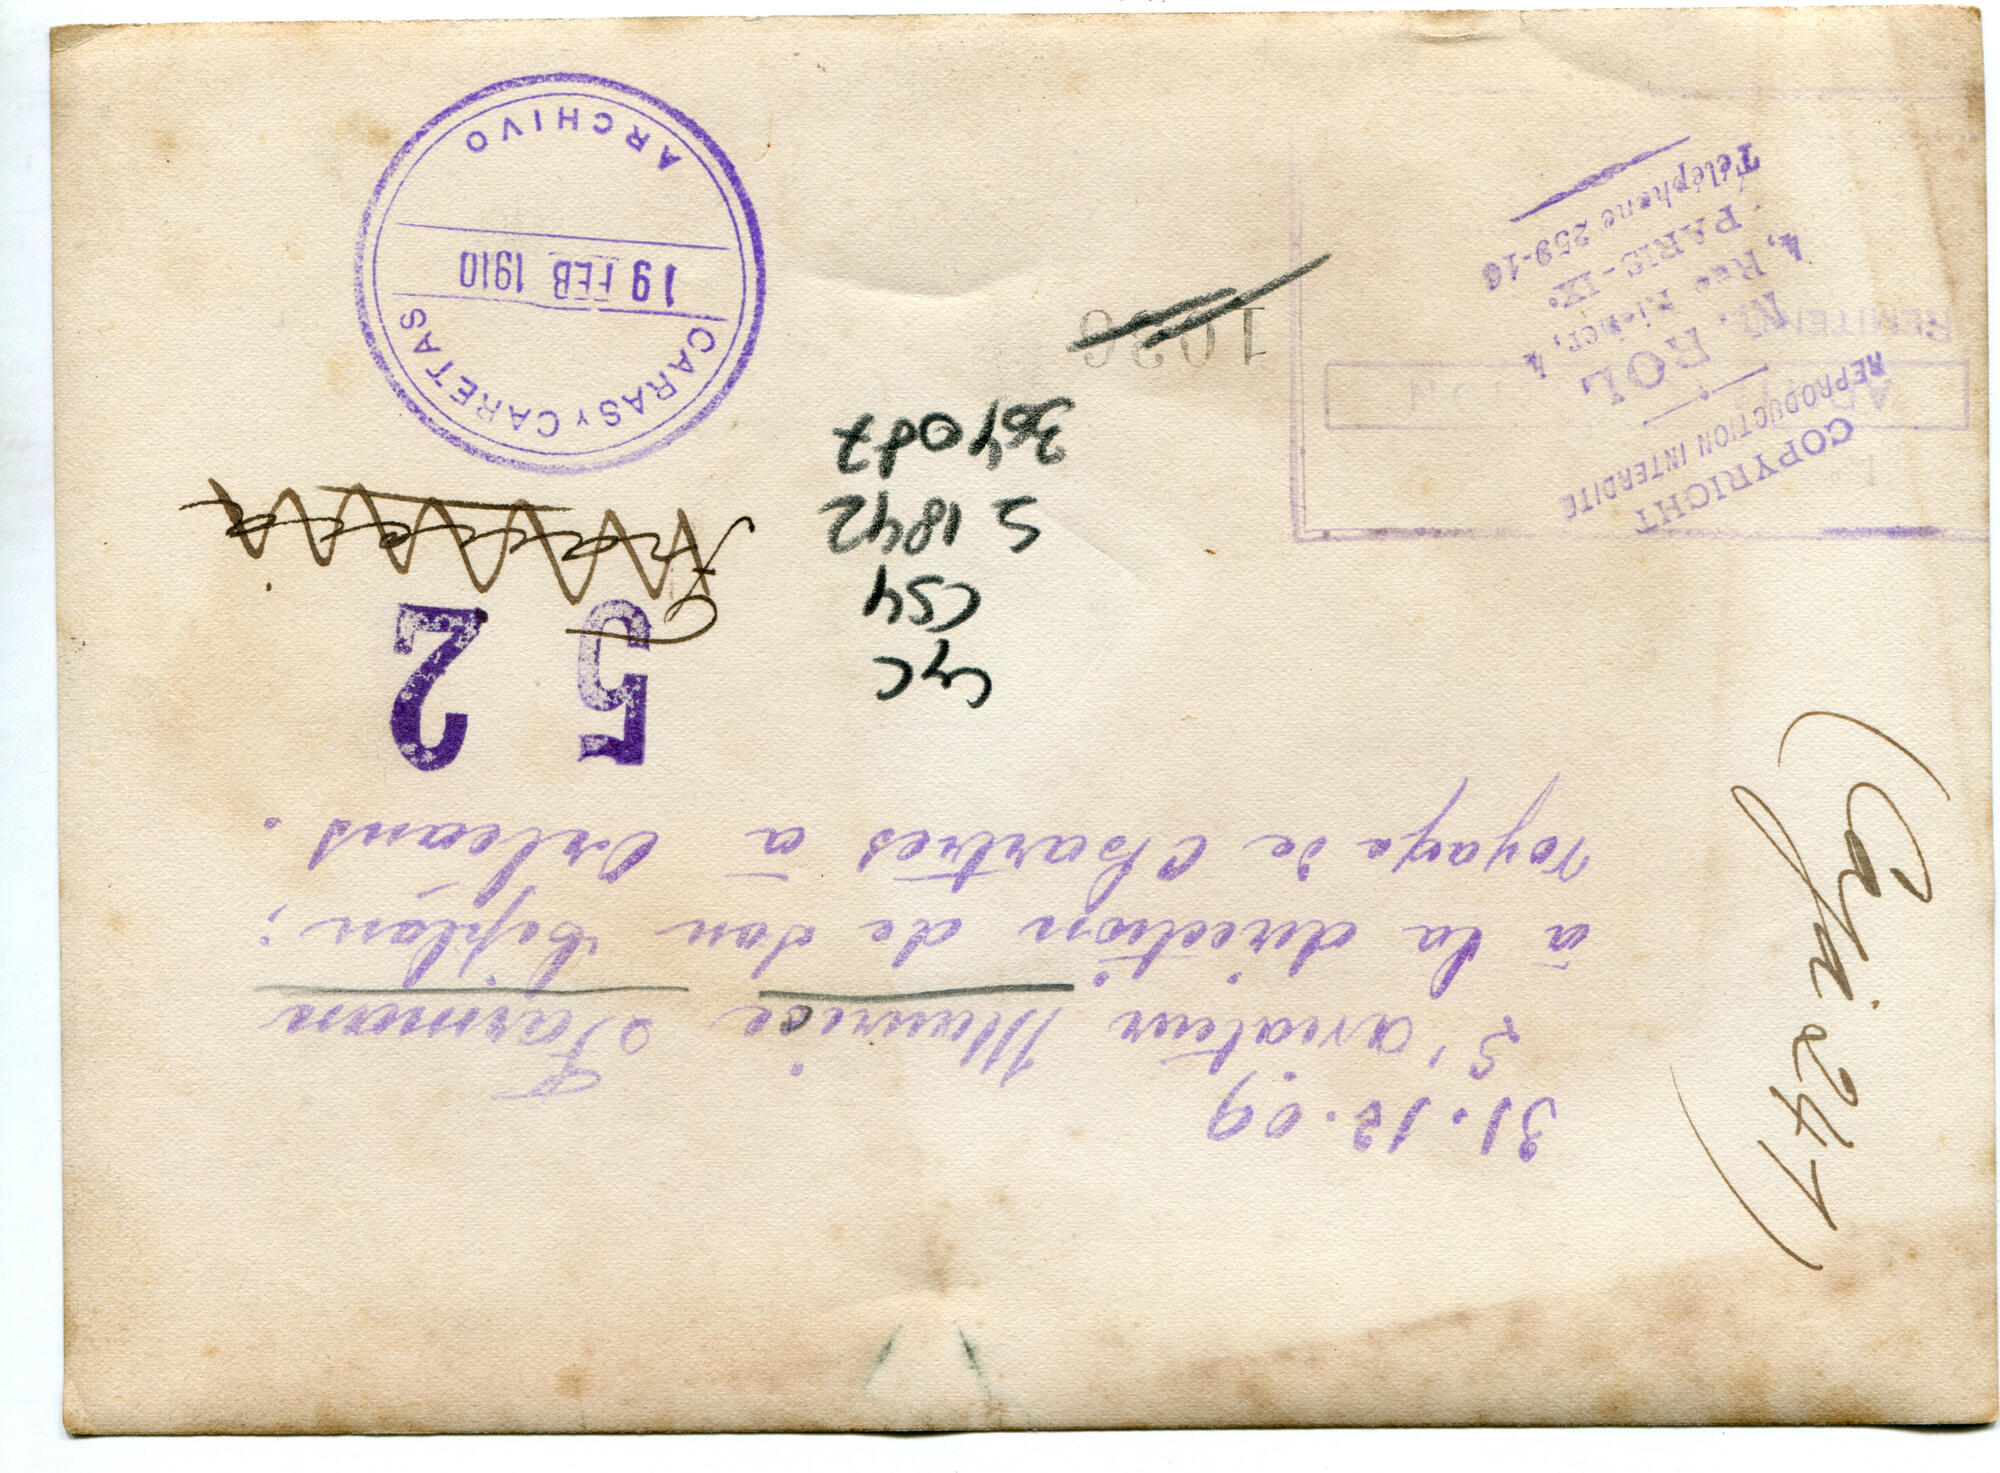 31.12.09
L'aviateur Maurice Farman
à la direction de son biplan;
voyage de Chartres à Orléans.
52
CyC
CS4
S 1842
1036
CARAS Y CARETAS
19 FEB 1910
ARCHIVO
COPYRIGHT
REPRODUCTION INTERDITE
M. ROL
4, Rue Richer, 4
PARIS-IXe
Téléphone 259-16
REMITEN
(Caja 241)